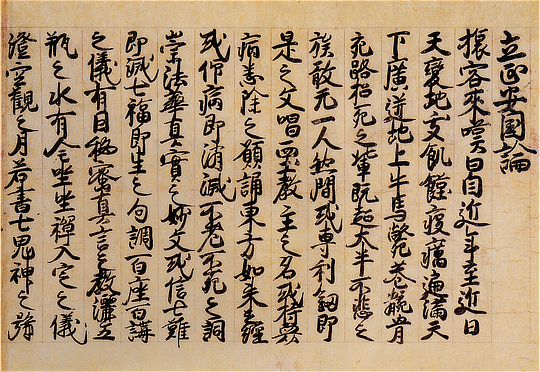 立正安国論
旅客來嘆曰自近年至近日
天變地夭飢饉疫癘遍滿天
下廣迸地上牛馬斃巷骸骨
充路招死之輩既超大半不悲之
族敢无一人然間或專利釼即
是之文唱西土教主之名或持衆
病悉除之願誦東方如来之經
或仰病即消滅不老不死之詞
崇法華真實之妙文或信七難
即滅七福即生之句調百座百講
之儀有因秘密真言之教灑五
瓶之水有人全坐禪入定之儀
澄空觀之月若書七鬼神之號